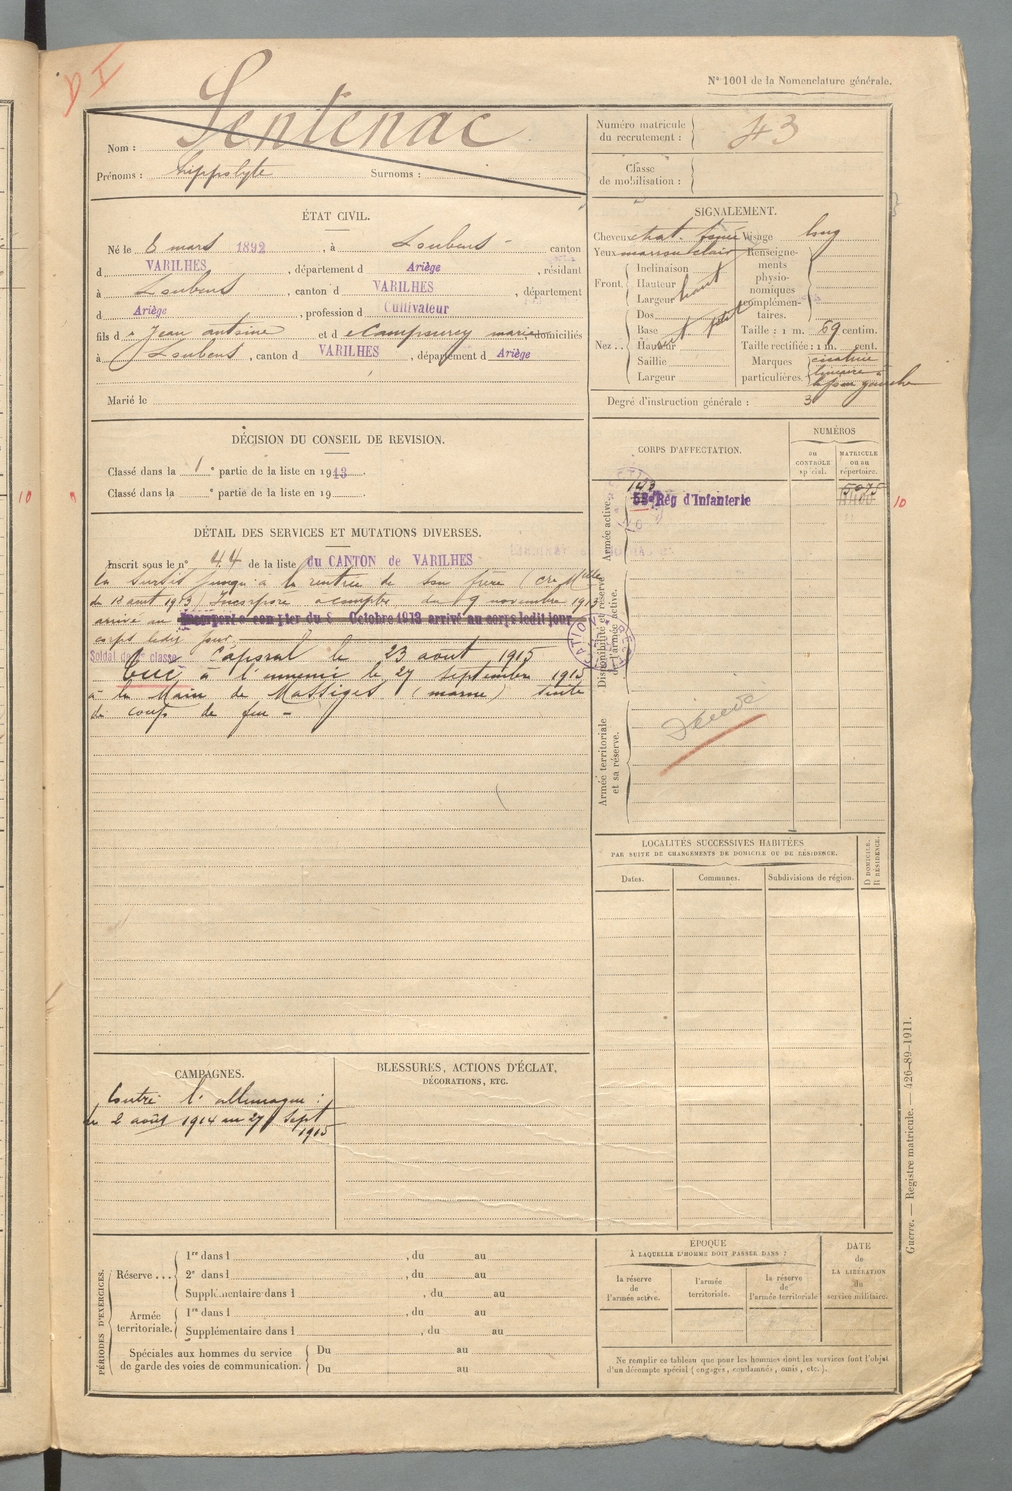 D I
N° 1001 de la Nomenclature générale.
Nom : Sentenac
Prénoms : Hippolyte Surnoms :
Numéro matricule du recrutement : 43
Classe de mobilisation :
ÉTAT CIVIL.
Né le 8 mars 1892, à Loubens - canton
d VARILHES, département d Ariège, résidant
à Loubens, canton d VARILHES, département
d Ariège, profession d Cultivateur
fils d Jean antoine et d marie domiciliés
à Loubens, canton d VARILHES, département d Ariège
Marié le
SIGNALEMENT.
Cheveux chat. foncé Visage long
Yeux marron clair Renseignements physionomiques complémentaires.
Front Inclinaison
Hauteur haut
Largeur
Nez Dos
Base
Hauteur
Saillie
Largeur
Taille : 1 m. 69 centim.
Taille rectifiée : 1 m. cent.
Marques particulières. cicatrice
lineaire
gauche
Degré d'instruction générale : 3
DÉCISION DU CONSEIL DE REVISION.
Classé dans la 1e partie de la liste en 1913.
Classé dans la e partie de la liste en 19
DÉTAIL DES SERVICES ET MUTATIONS DIVERSES.
Inscrit sous le n° 44 de la liste du CANTON de VARILHES
En sursis jusqu'à la rentrée de son frère (
du 12 aout 1913) Incorporé à compter du 9 novembre 1913
arrivé au Incorporé à compter du 8 Octobre 1913 arrivé au corps ledit jour
corps ledit jour.
Soldat de 2e classe. Caporal le 23 aout 1915
Tué à l'ennemi le 27 septembre 1915
à la Main de Massiges (marne) suite
de coup de feu -
CORPS D'AFFECTATION.
NUMÉROS
au CONTRÔLE spécial.
MATRICULE ou au répertoire.
Armée active.
143
Rég d'Infanterie
5075
10
10
Disponibilité et réserve de l'armée active.
Armée territoriale et sa réserve.
LOCALITÉS SUCCESSIVES HABITÉES
PAR SUITE DE CHANGEMENTS DE DOMICILE OU DE RÉSIDENCE.
Dates.
Communes.
Subdivisions de région.
D DOMICILE. R RÉSIDENCE.
CAMPAGNES.
Contre l'allemagne :
du 2 août 1914 au 27 Sept
1915
BLESSURES, ACTIONS D'ÉCLAT,
DÉCORATIONS, ETC.
PÉRIODES D'EXERCICES.
Réserve... 1re dans l , du au
2e dans l , du au
Supplémentaire dans l , du au
Armée territoriale. 1re dans l , du au
Supplémentaire dans l , du au
Spéciales aux hommes du service de garde des voies de communication. Du au
Du au
EPOQUE
À LAQUELLE L'HOMME DOIT PASSER DANS :
la réserve de l'armée active.
l'armée territoriale.
la réserve de l'armée territoriale
DATE de LA LIBÉRATION du service militaire.
Ne remplir ce tableau que pour les hommes dont les services font l'objet
d'un décompte spécial (engagés, condamnés, omis, etc.).
Guerre. — Registre matricule. — 426-89-1911.